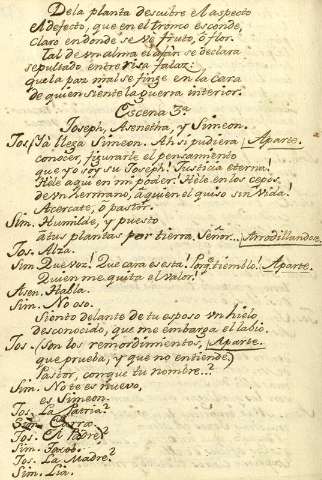 De la planta descubre el aspecto
el defecto, que en el tronco esconde,
Claro en donde se vé fruto, ó flor.
Tal de un alma el afán se declara
sepultado entre risa falaz:
que la paz mal se finge en la cara
de quien siente la guerra interior.
Escena 3ª
Joseph, Asenetha, y Simeon.
Jos. (Yá llega Simeon. Ah si pudiera Aparte.
conocer, figurarle el pensamiento
que yo soy su Joseph! Justicia eterna!
Hele aqui en mi poder! Hele en los cepos
de un hermano, á quien él quiso sin vida!
Acercate, ó pastor.
Sim. Humilde, y puesto
á tus plantas por tierra. Señor... Arrodillandose
Jos. Alza.
Sim. Que voz! Que cara es esta! Porq. tiemblo! Aparte.
Quien me quita el valor!
Asen. Habla.
Sim. No oso.
Siento delante de tu esposo un hielo
desconocido, que me embarga el labio.
Jos. (Son los remordimientos, Aparte.
que prueba, y que no entiende.)
Pastor, conque tu nombre...?
Sim. No te es nuevo,
es Simeon.
Jos. La Patria?
Sim. Carra.
Jos. El Padre?
Sim. Jacob.
Jos. La Madre?
Sim. Lia.